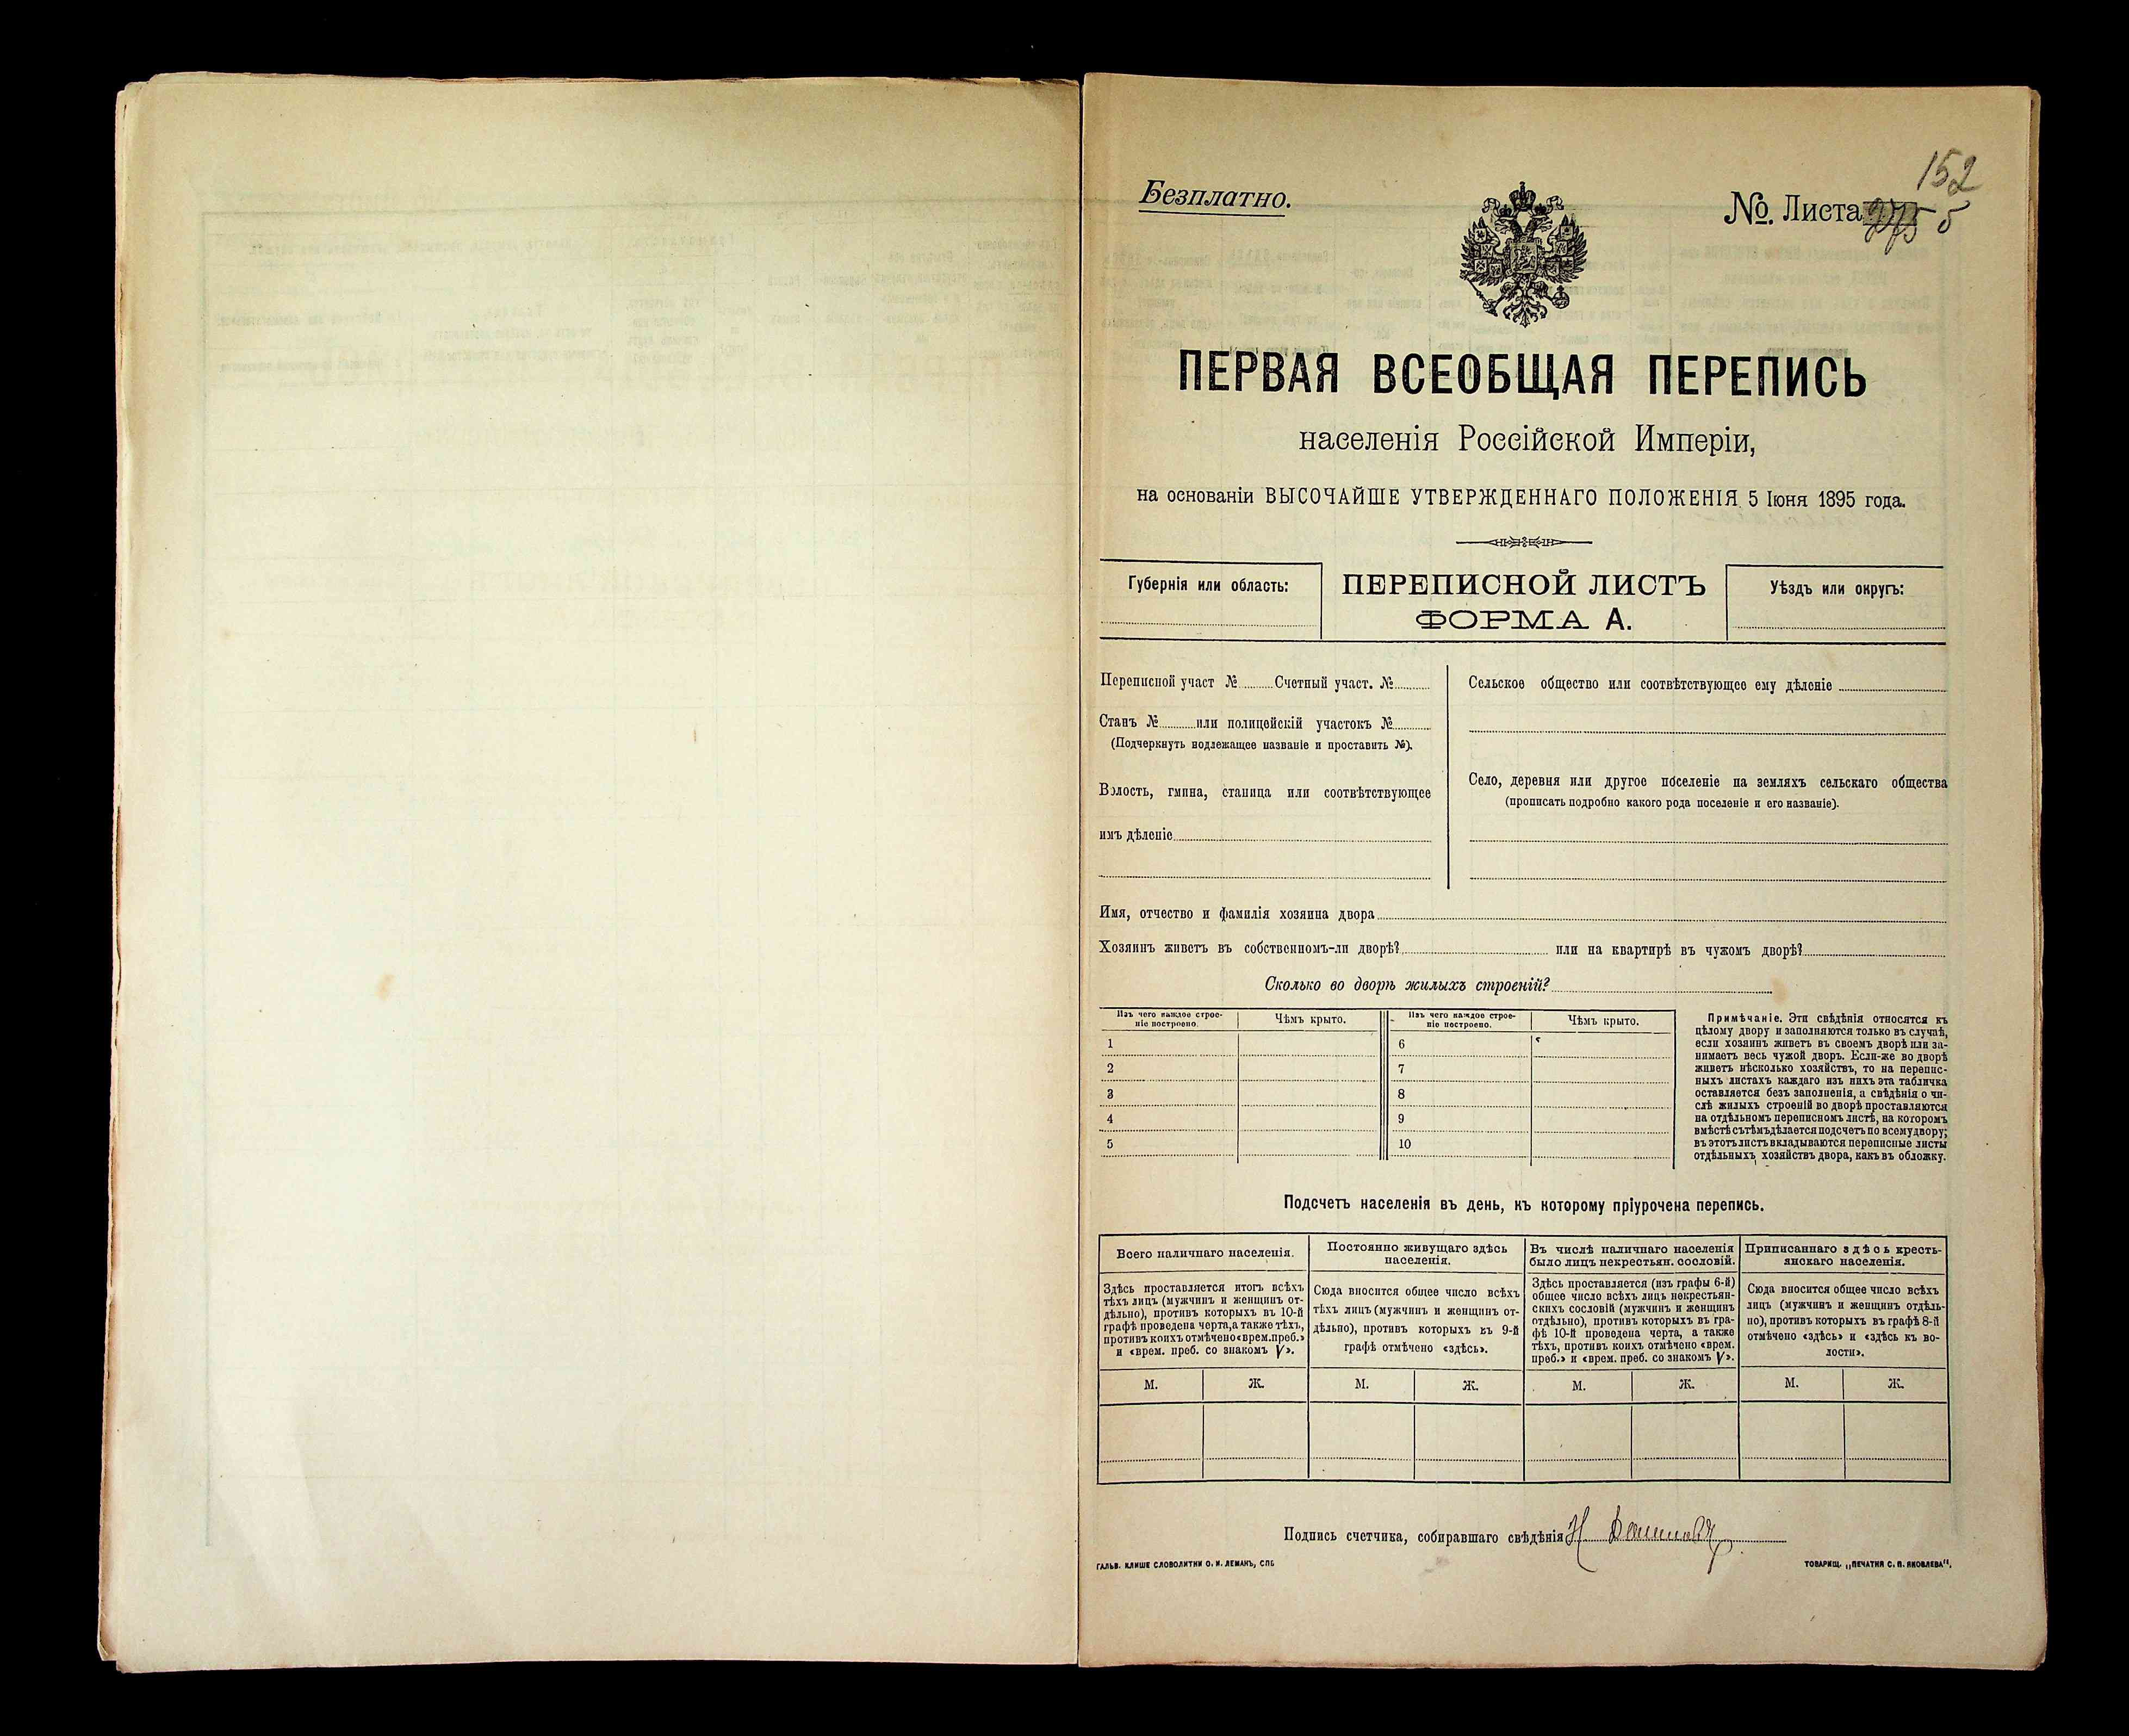 152
Безплатно.
№. Листа
ПЕРВАЯ ВСЕОБЩАЯ ПЕРЕПИСЬ
населенія Россійской Имперіи,
на основаніи ВЫСОЧАЙШЕ УТВЕРЖДЕННАГО ПОЛОЖЕНІЯ 5 Іюня 1895 года.
Губернія или область:
ПЕРЕПИСНОЙ ЛИСТЪ
ФОРМА А.
Уѣздъ или округъ:
Переписной участ № Счетный участ. №
Станъ № или полицейскій участокъ №
(Подчеркнуть подлежащее названіе и проставить №).
Волость, гмина, станица или соотвѣтствующее
имъ дѣленіе
Сельское общество или соотвѣтствующее ему дѣленіе
Село, деревня или другое поселеніе на земляхъ сельскаго общества
(прописать подробно какого рода поселеніе и его названіе).
Имя, отчество и фамилія хозяина двора
Хозяинъ живетъ въ собственномъ-ли дворѣ? или на квартирѣ въ чужомъ дворѣ?
Сколько во дворѣ жилыхъ строеній?
Изъ чего каждое строе-
ніе построено.
Чѣмъ крыто.
Изъ чего каждое строе-
ніе построено.
Чѣмъ крыто.
1 6
2 7
3 8
4 9
5 10
Примѣчаніе. Эти свѣдѣнія относятся къ
цѣлому двору и заполняются только въ случаѣ,
если хозяинъ живетъ въ своемъ дворѣ или за-
нимаетъ весь чужой дворъ. Если-же во дворѣ
живетъ нѣсколько хозяйствъ, то на перепис-
ныхъ листахъ каждаго изъ нихъ эта табличка
оставляется безъ заполненія, а свѣдѣнія о чи-
слѣ жилыхъ строеній во дворѣ проставляются
на отдѣльномъ переписномъ листѣ, на которомъ
вмѣстѣ съ тѣмъ дѣлается подсчетъ по всему двору;
въ этотъ листъ вкладываются переписные листы
отдѣльныхъ хозяйствъ двора, какъ въ обложку.
Подсчетъ населенія въ день, къ которому пріурочена перепись.
Всего наличнаго населенія.
Здѣсь проставляется итогъ всѣхъ
тѣхъ лицъ (мужчинъ и женщинъ от-
дѣльно), противъ которыхъ въ 10-й
графѣ проведена черта, а также тѣхъ,
противъ коихъ отмѣчено «врем. преб.»
и «врем. преб. со знакомъ V».
Постоянно живущаго здѣсь
населенія.
Сюда вносится общее число всѣхъ
тѣхъ лицъ (мужчинъ и женщинъ от-
дѣльно), противъ которыхъ въ 9-й
графѣ отмѣчено «здѣсь».
Въ числѣ наличнаго населенія
было лицъ некрестьян. сословій.
Здѣсь проставляется (изъ графы 6-й)
общее число всѣхъ лицъ некрестьян-
скихъ сословій (мужчинъ и женщинъ
отдѣльно), противъ которыхъ въ гра-
фѣ 10-й проведена черта, а также
тѣхъ, противъ коихъ отмѣчено «врем.
преб.» и «врем. преб. со знакомъ V».
Приписаннаго здѣсь кресть-
янскаго населенія.
Сюда вносится общее число всѣхъ
лицъ (мужчинъ и женщинъ отдѣль-
но), противъ которыхъ въ графѣ 8-й
отмѣчено «здѣсь» и «здѣсь въ во-
лости».
М. Ж. М. Ж. М. Ж. М. Ж.
Подпись счетчика, собиравшаго свѣдѣнія
ГАЛЬВ. КЛИШЕ СЛОВОЛИТНИ О. И. ЛЕМАНЪ, СПБ
ТОВАРИЩ. „ПЕЧАТНЯ С. П. ЯКОВЛЕВА".